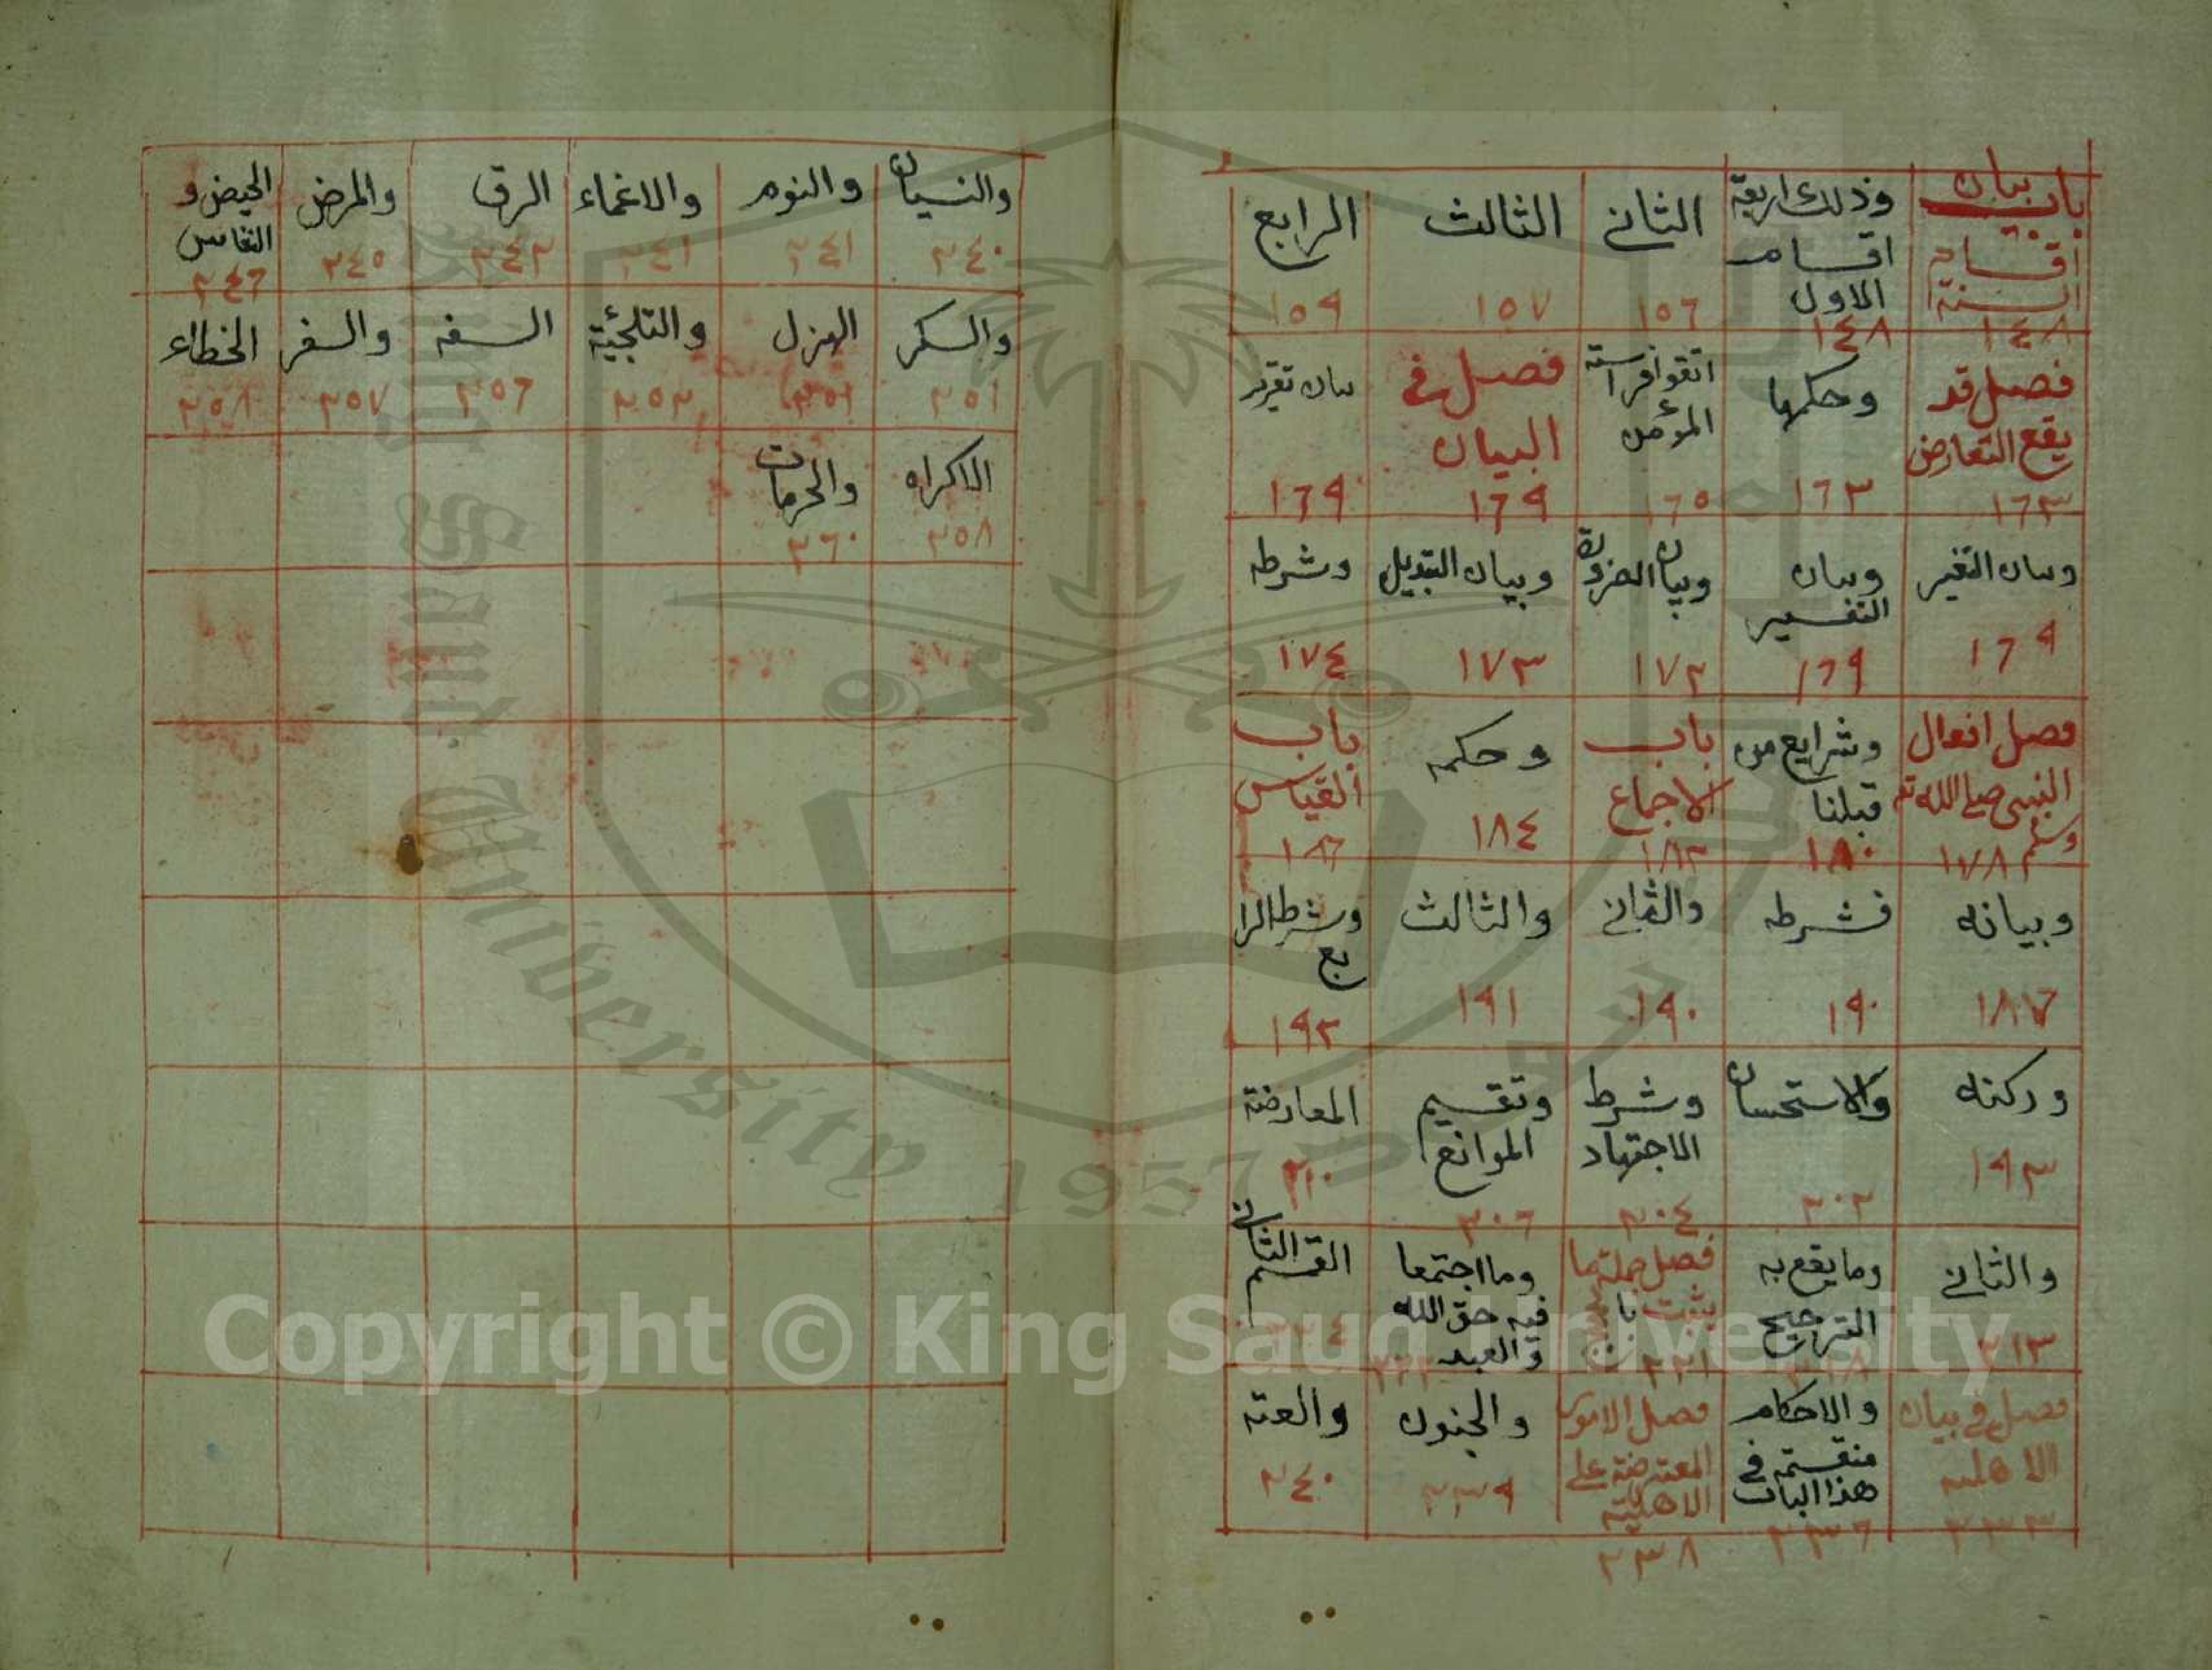 باب بيان اقسام السنة ١٤٨
وذلك اربعة اقسام الاول ١٤٨
الثاني ١٥٦
الثالث ١٥٧
الرابع ١٥٩
فصل قد يقع التعارض ١٦٣
وحكمها ١٦٣
اتقوا فراسة المؤمن ١٦٥
فصل في البيان ١٦٩
بيان تقرير ١٦٩
وبيان التغير ١٦٩
وبيان التفسير ١٦٩
وبيان الضرورة ١٧٢
وبيان التبديل ١٧٣
وشرطه ١٧٤
فصل افعال النبى صلى الله تع وسلم ١٧٨
وشرايع من قبلنا ١٨٠
باب الاجماع ١٨٢
وحكمه ١٨٤
باب القياس ١٨٦
وبيانه ١٨٧
فشرطه ١٩٠
والثاني ١٩٠
والثالث ١٩١
وشرط الرابع ١٩٢
وركنه ١٩٣
والاستحسان ٢٠٢
وشرط الاجتهاد ٢٠٤
وتقسيم الموانع ٢٠٦
المعارضة ٢١٠
والثاني ٢١٣
وما يقع به الترجيح
فصل جملة ما يثبت ٢٢١
وما اجتمعا فيه حق الله والعبد
القسم الثاني
فصل في بيان الاهلية ٢٣٣
والاحكام منقسمة في هذا الباب ٢٣٦
فصل الامور المعترضة على الاهلية ٢٣٨
والجنون ٢٣٩
والعته ٢٤٠
والنسيان ٢٤٠
والنوم ٢٤١
والاغماء ٢٤١
الرق ٢٤٢
والمرض ٢٤٥
الحيض و النفاس ٢٤٦
والسكر ٢٥١
الهزل ٢٥١
والتلجئة ٢٥٣
السفه ٢٥٦
والسفر ٢٥٧
الخطاء ٢٥٨
الاكراه ٢٥٨
والحرمات ٢٦٠
King Saud University
1957
Copyright © King Saud University